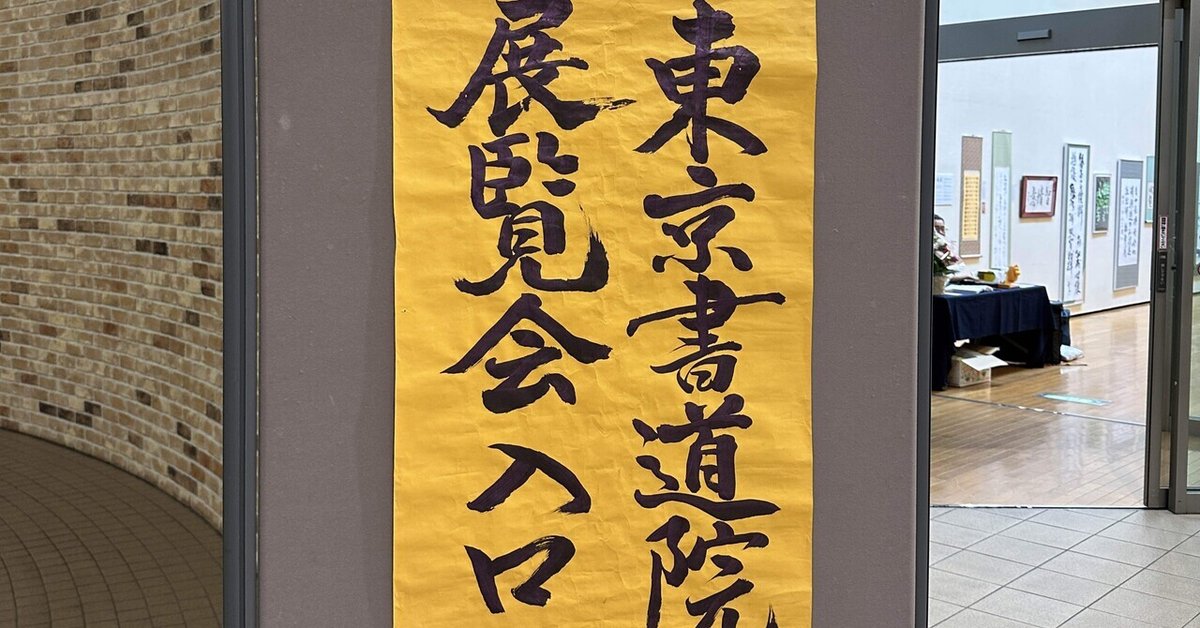 東京書道院
展覧会入口